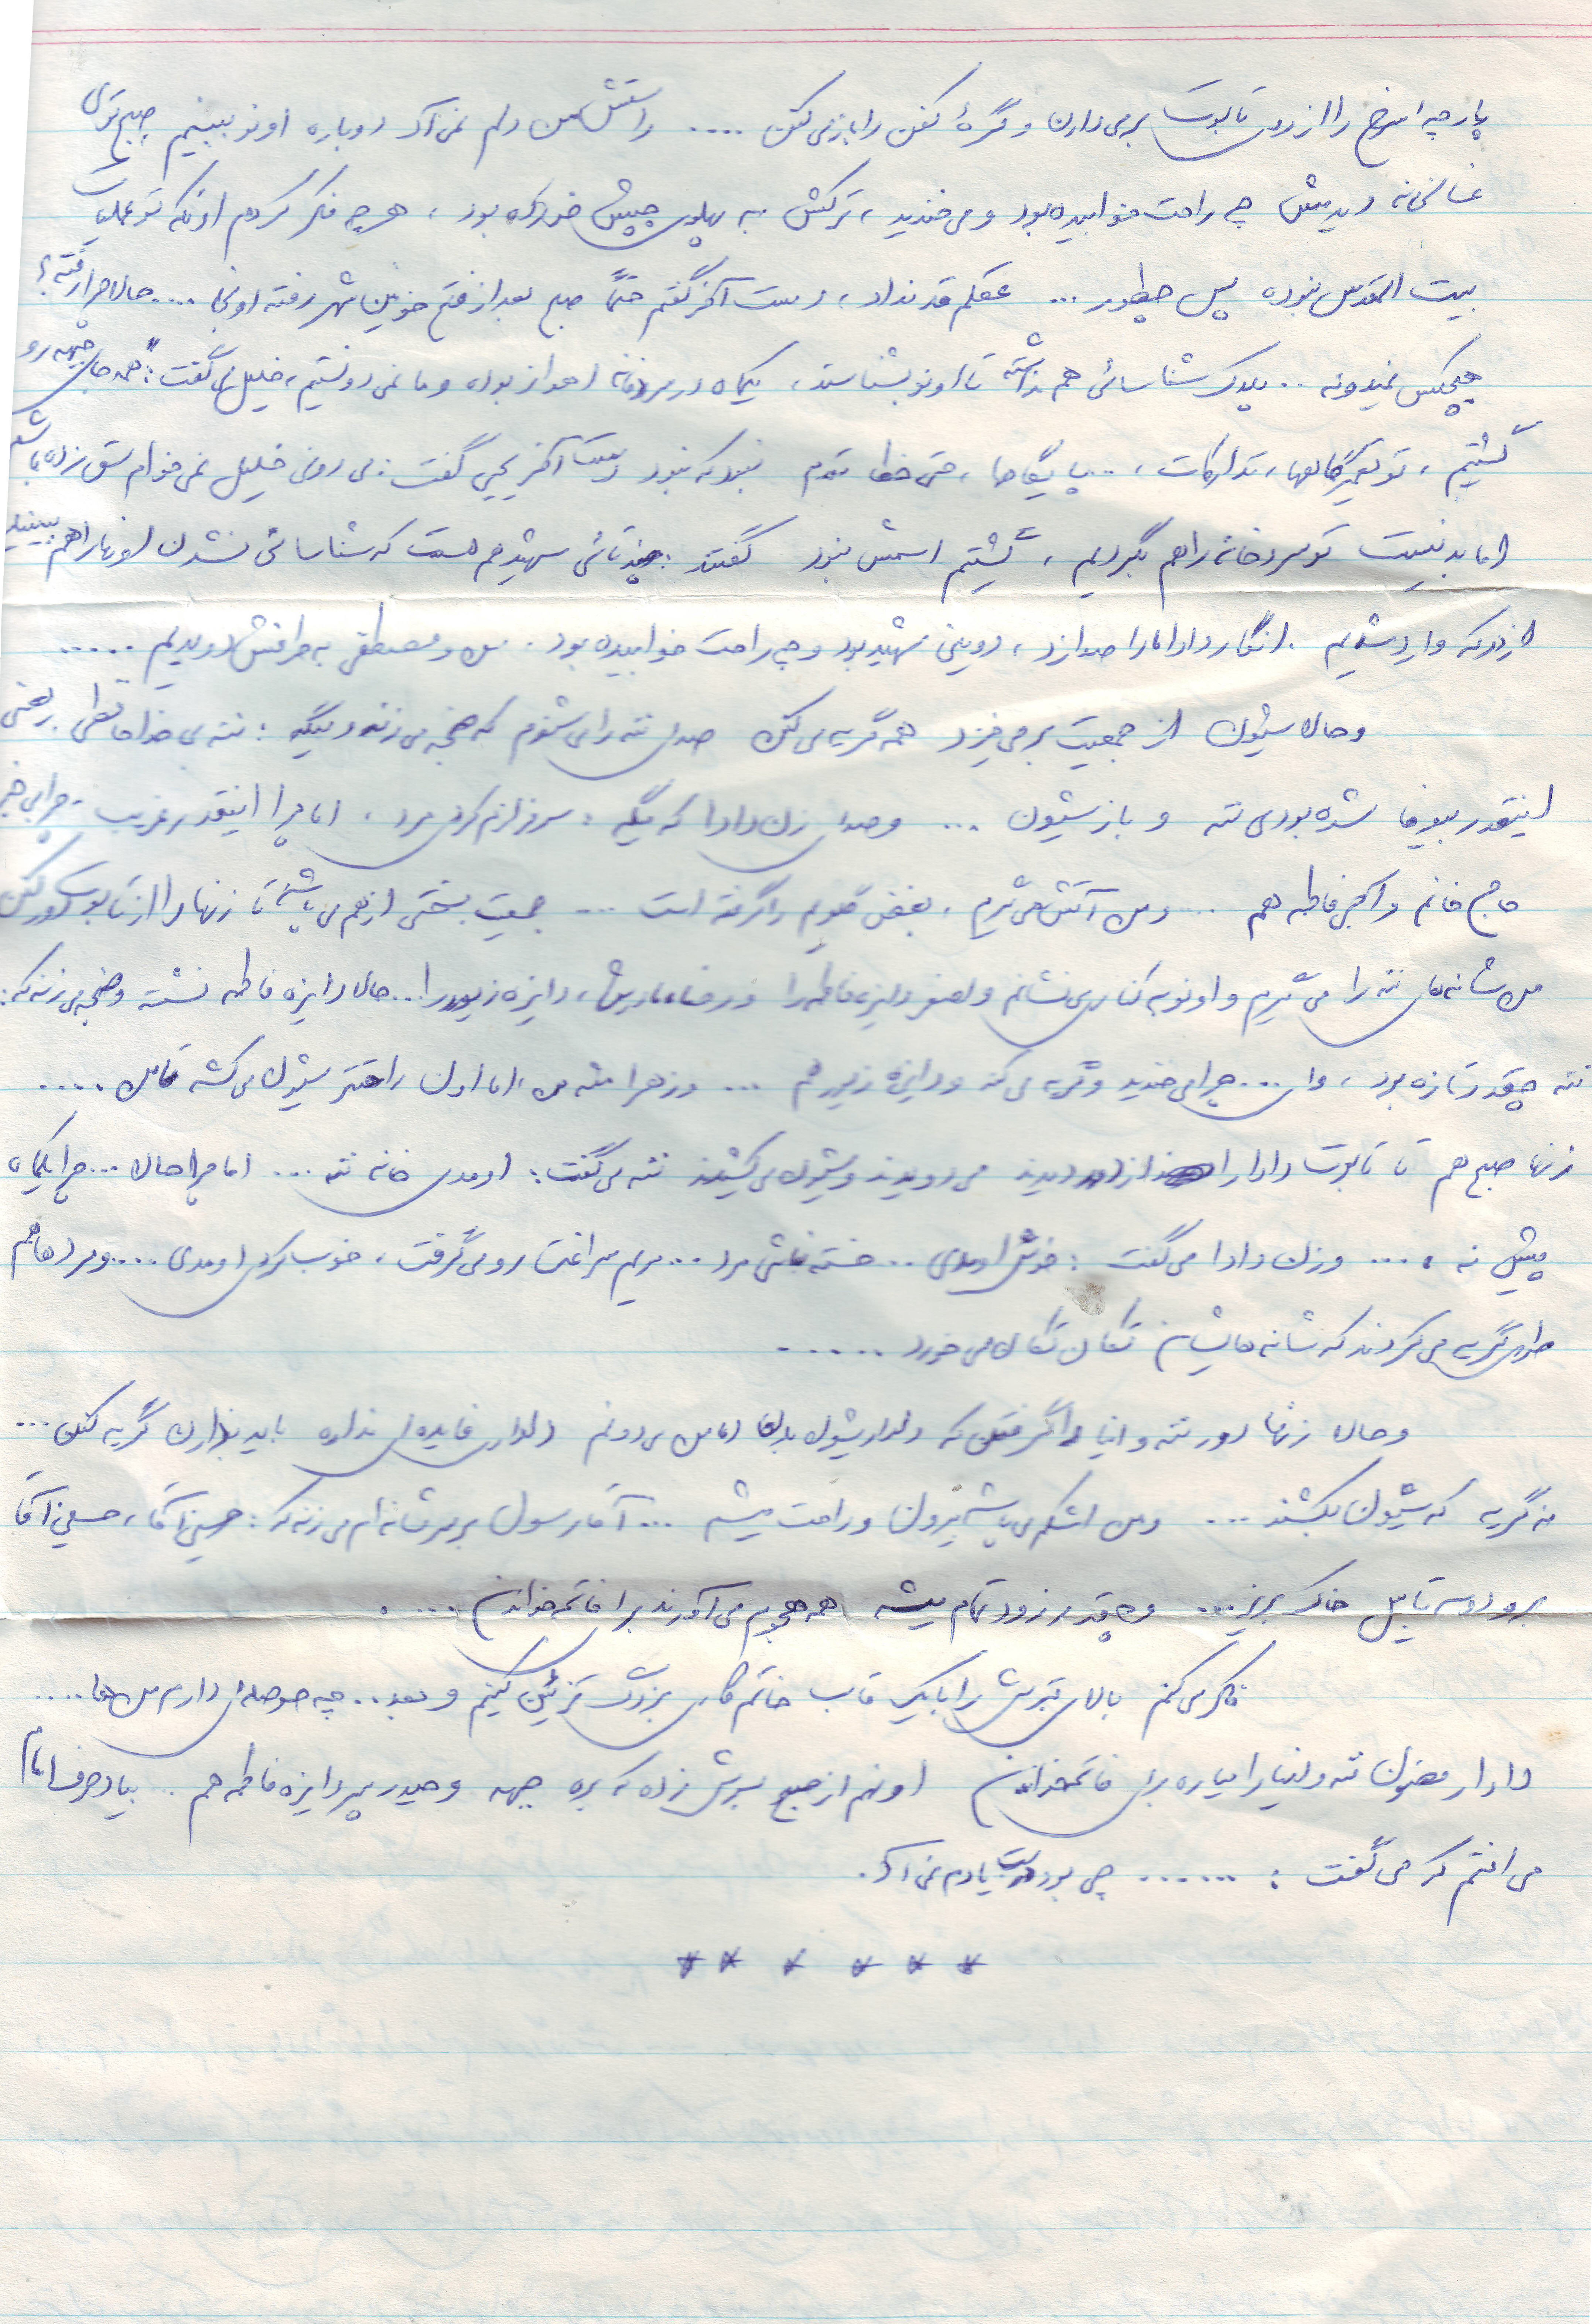 پارچه سرخ را از روی تابوت برمی دارن و گرهٔ کفن را باز می کنن .... راستش من دلم نمی آد دوباره اونو ببینم صبح توی
غسالخانه دیدمش چه راحت خوابیده بود و می خندید ، ترکش به پهلوی چپش خورده بود ، هر چه فکر کردم اونکه تو عملیات
بیت المقدس نبوده پس چطور ... عقلم قد نداد ، دست آخر گفتم حتماً صبح بعد از فتح خونین شهر رفته اونجا .... حالا چرا رفته ؟
هیچکس نمیدونه .. پلاک شناسائی هم نداشته تا اونو بشناسند ، یکماه در سردخانه اهواز بوده و ما نمی دونستیم ، خلیل می گفت : "همه جای جبهه رو
گشتیم ، تو تعمیرگاهها ، تدارکات ، .. پایگاها ، حتی خط مقدم نبود که نبود دست آخر یحیی گفت : ببین خلیل نمی خوام نق زده باشم
اما بد نیست تو سردخانه را هم بگردیم ، گشتیم اسمش نبود گفتند : چند تائی شهید هم هست که شناسائی نشدن اونها را هم ببینید
از در که وارد شدیم . انگار دادا ما را صدا زد ، دومین شهید بود و چه راحت خوابیده بود . من و مصطفی به طرفش دویدیم .....
و حالا شیون از جمعیت برمی خیزد همه گریه می کنن صدای ننه را می شنوم که ضجه می زنه و میگه : ننه بی خداحافظی رفتی
اینقدر بیوفا شده بودی ننه و باز شیون ... و صدای زن دادا که میگه : سرفرازم کردی مرد ، اما چرا اینقدر غریب ، چرا بی خبر
حاج خانم و آبجی فاطمه هم .... و من آتش می گیرم ، بغض گلویم را گرفته است .... جمعیت بسختی از هم می پاشه تا زنها را از تابوت دور کنن
من شانه های ننه را می گیرم و اونو به کناری می نشانم و دایزه فاطمه را ، دایزه زیور را .. حالا دایزه فاطمه نشسته و ضجه می زنه که :
ننه چقدر تازه بود ، وای .... چرا می خندید و گریه می کنه و دایزه زیور هم ... و زهرا اما اون راحتتر شیون می کشه تا من ....
زنها صبح هم تا تابوت دادا را از دور دیدند می دویدند و شیون می کشیدند ننه می گفت : اومدی خانه ننه ... اما چرا حالا ... چرا یکماه
پیش نه .... و زن دادا می گفت : خوش اومدی .. خسته نباشی مرد ... مریم سراغت رو می گرفت ، خوب کردی اومدی .... و مردها هم
طوری گریه می کردند که شانه هایشان تکان تکان می خورد ......
و حالا زنها دور ننه و اینا را گرفتن که دلداریشون بدن اما من می دونم دلداری فایده ای نداره باید بذارن گریه کنن ...
نه گریه که شیون بکشند .... و من اشکم می پاشه بیرون و راحت میشم ... آقا رسول بر سرشانه ام می زنه که : حسین آقا ، حسین آقا
برو دو سه تا بیل خاک بریز ... و چقدر زود تمام میشه همه هجوم می آورند برای فاتحه خواندن ....
فکر می کنم بالای قبرش را با یک قاب خاتم کاری بزرگ تزئین کنیم و بعد .. چه حوصله ای دارم من ها ....
دادا رمضون ننه و اینا را میاره برای فاتحه خواندن اونم از صبح بسرش زده که بره جبهه و حیدر پسر دایزه فاطمه هم .. بیاد حرف امام
می افتم که می گفت : ...... چی بود درست یادم نمی آد .
* * * * * *